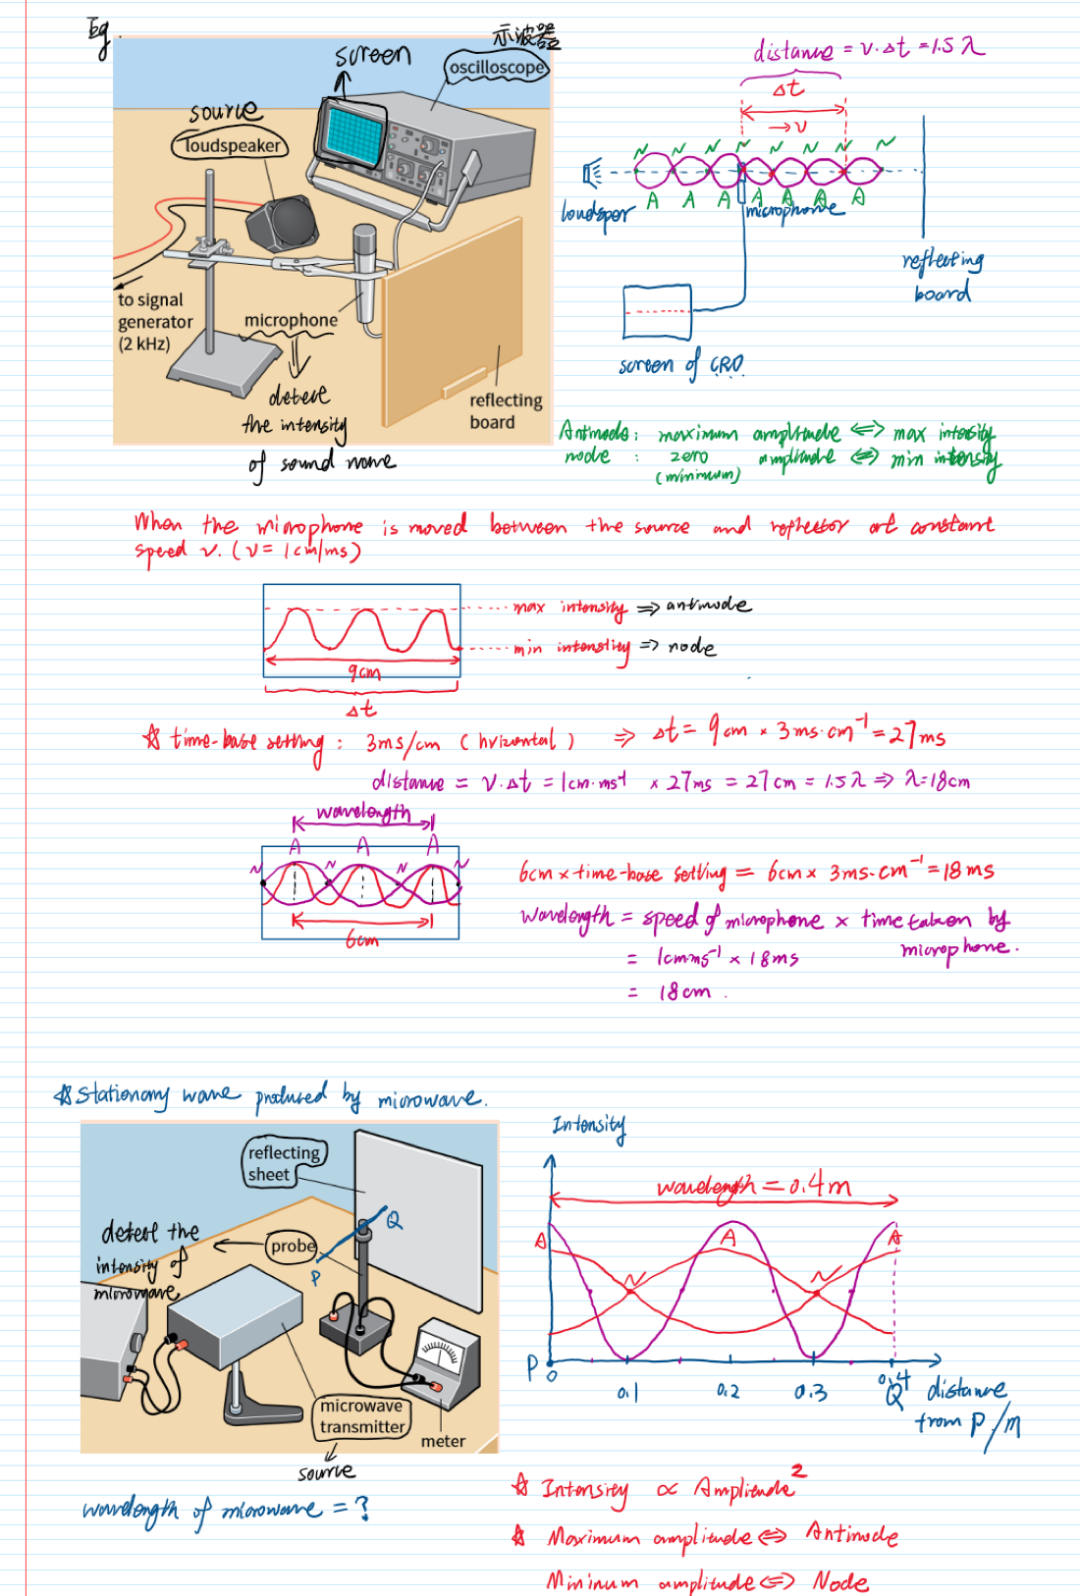 Eg
示波器
screen
oscilloscope
source
loudspeaker
to signal
generator
(2 kHz)
microphone
detect
the intensity
of sound wave
reflecting
board
distance = v·Δt = 1.5 λ
Δt
→ v
N N N N N N N N
A A A A A A A
microphone
reflecting
board
screen of CRO
Antinode: maximum amplitude ⟺ max intensity
node : zero amplitude ⟺ min intensity
(minimum)
When the microphone is moved between the source and reflector at constant
speed v. (v = 1cm/ms)
max intensity ⇒ antinode
min intensity ⇒ node
9cm
Δt
☆ time-base setting : 3ms/cm (horizontal) ⇒ Δt = 9cm × 3ms·cm⁻¹ = 27ms
distance = v·Δt = 1cm·ms⁻¹ × 27ms = 27cm = 1.5λ ⇒ λ=18cm
wavelength
A A A
N N N N
6cm
6cm × time-base setting = 6cm × 3ms·cm⁻¹ = 18ms
wavelength = speed of microphone × time taken by
microphone.
= 1cm·ms⁻¹ × 18ms
= 18cm.
☆ Stationary wave produced by microwave.
reflecting
sheet
Q
detect the
intensity of
microwave
probe
P
microwave
transmitter
meter
source
wavelength of microwave = ?
Intensity
wavelength = 0.4m
A N A N A
P
0 0.1 0.2 0.3 0.4
Q
distance
from P/m
☆ Intensity ∝ Amplitude²
☆ Maximum amplitude ⟺ Antinode
Mininum amplitude ⟺ Node